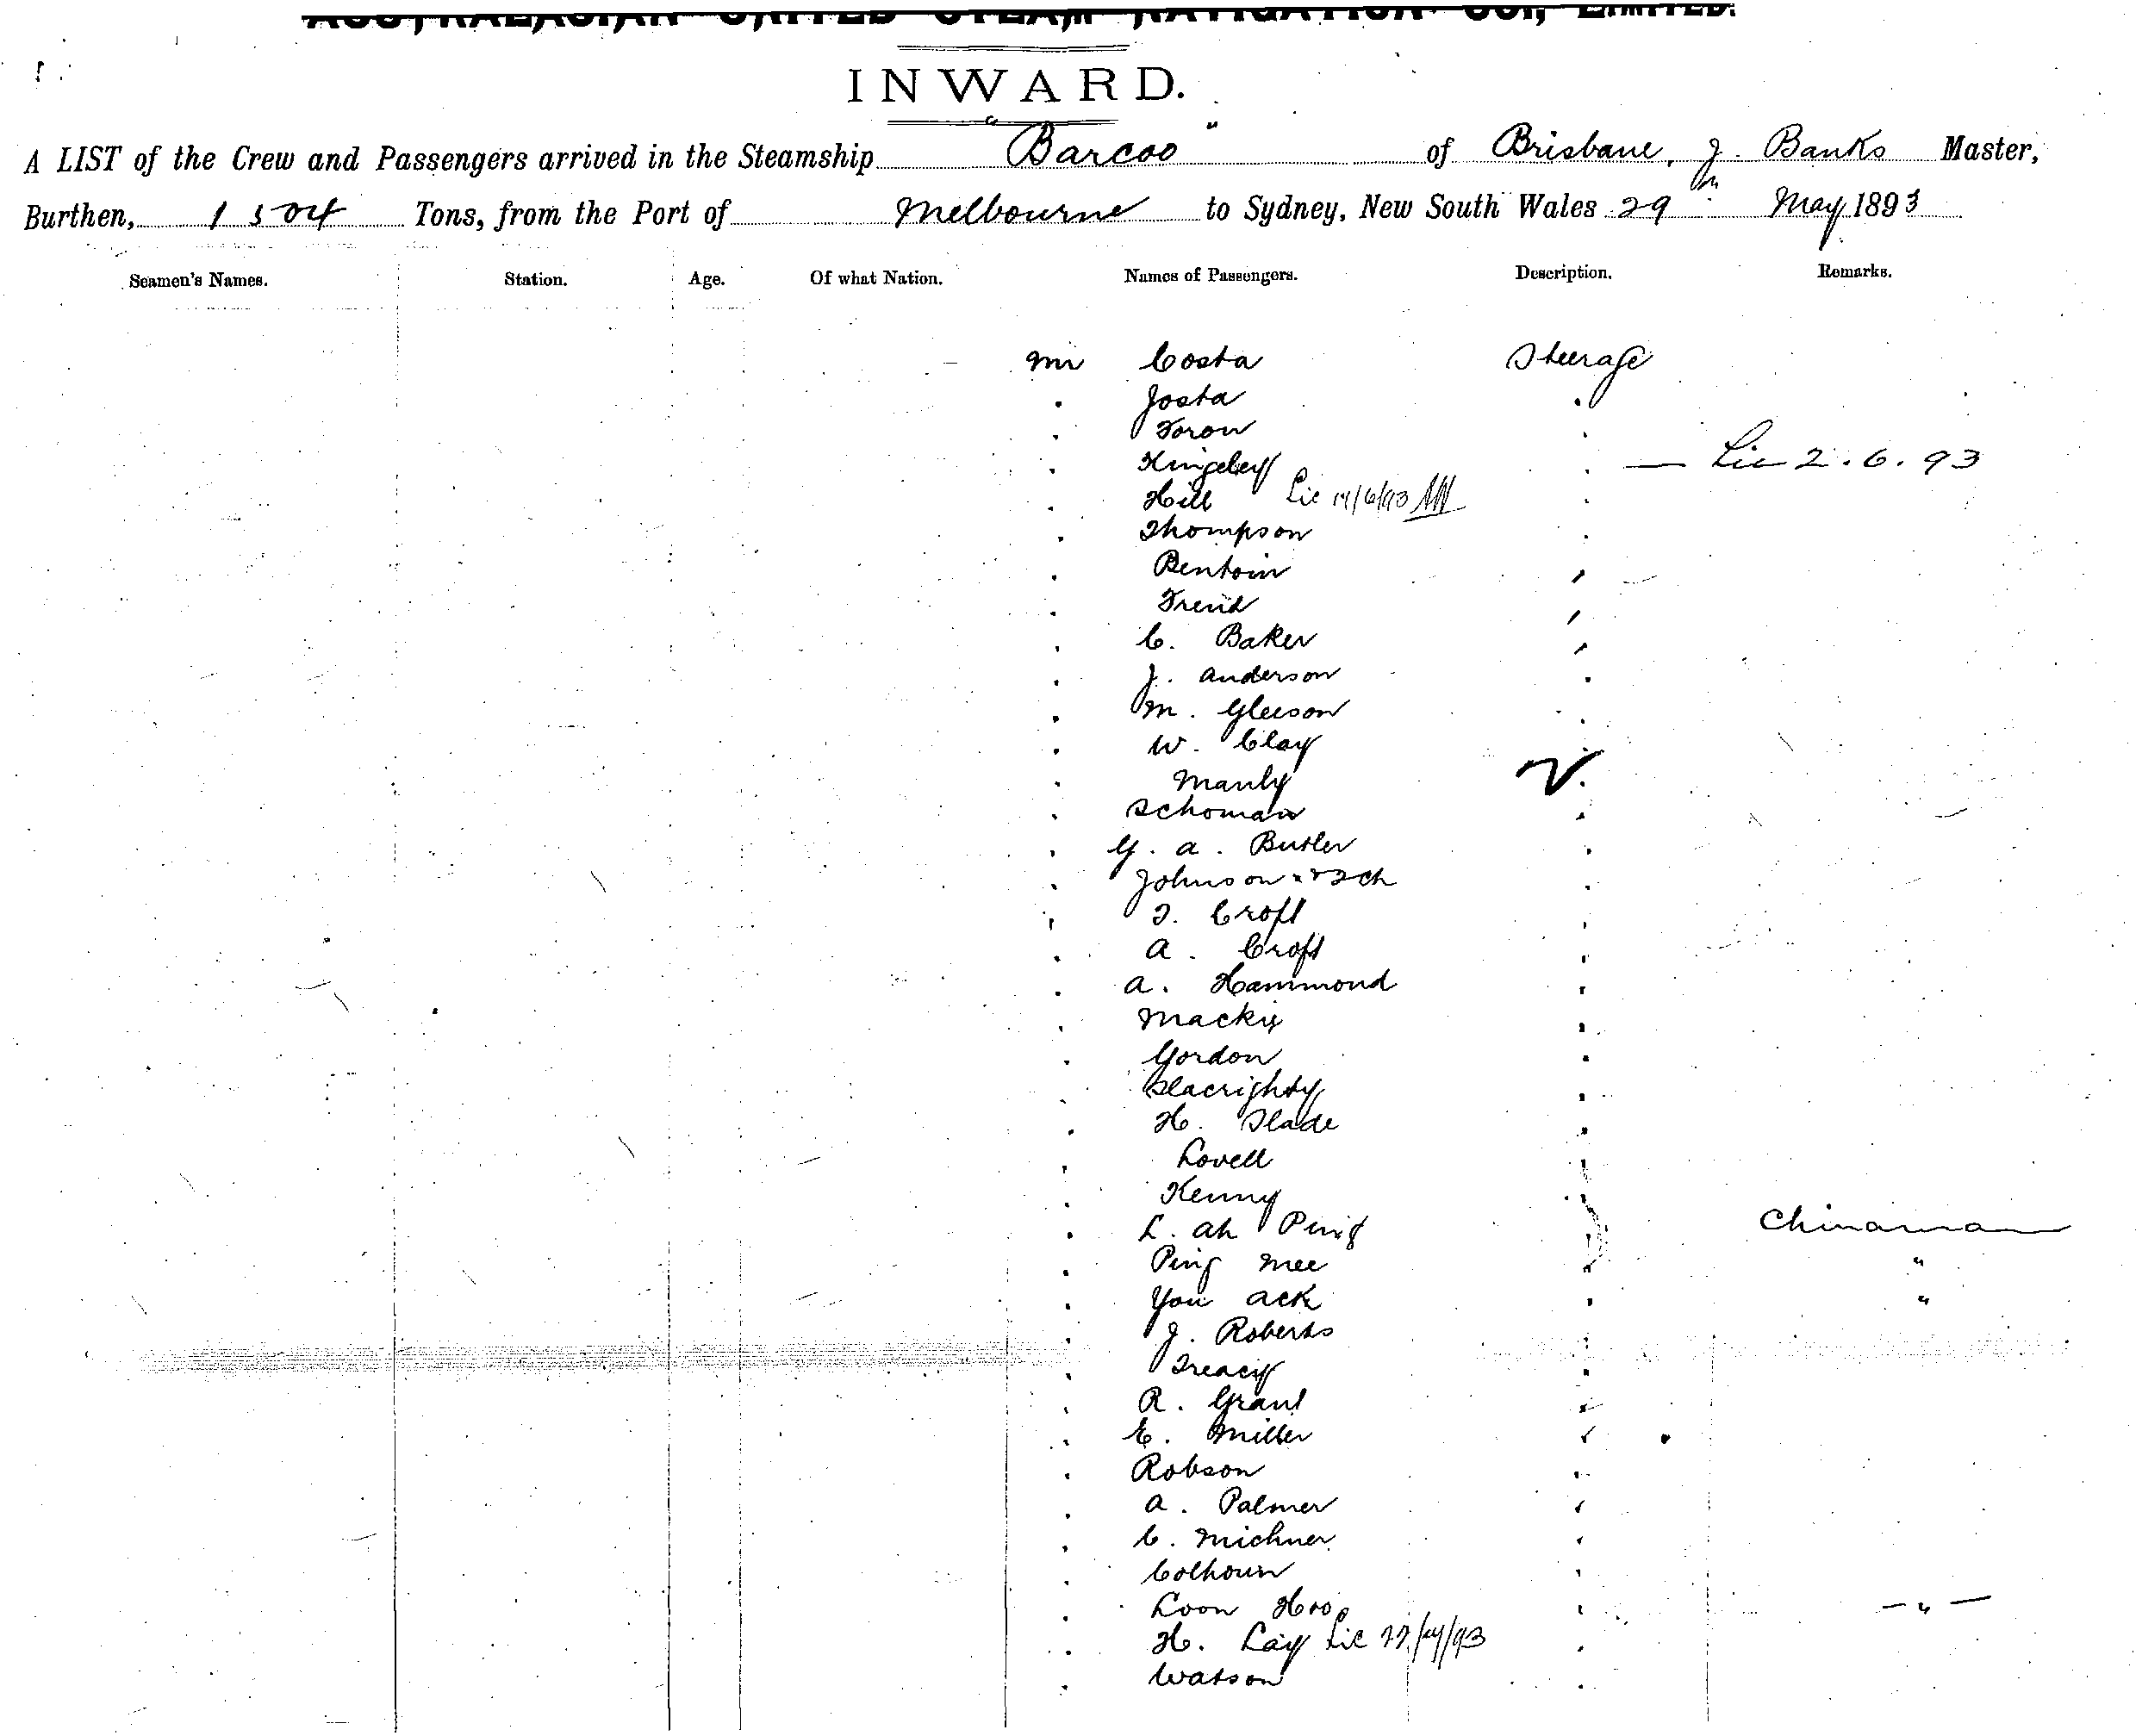 AUSTRALASIAN UNITED STEAM NAVIGATION CO., LIMITED.
INWARD.
A LIST of the Crew and Passengers arrived in the Steamship "Barcoo" of Brisbane, J. Banks Master,
Burthen, 1504 Tons, from the Port of Melbourne to Sydney, New South Wales 29th May 1893
Seamen's Names. Station. Age. Of what Nation. Names of Passengers. Description. Remarks.
Mr Costa Steerage
. Josta .
. Toron .
. Kingsley . — Lic 2.6.93
. Hill Lic 14/6/93 .
. Thompson .
. Bentoin "
. Trend "
. C. Baker "
. J. Anderson .
. M. Gleeson .
. W. Clay .
. Manly .
. Schoman .
. G. A. Butler .
. Johnson & 2 ch .
. T. Croft .
. A. Croft .
. A. Hammond .
. Mackie .
. Gordon .
. .
. H. Slade .
. Lovell .
. Kenny .
. L. Ah Ping . Chinaman
. Ping Mee . "
. You Ack . "
. J. Roberts .
. Treacy .
. R. Grant .
. E. Miller .
. Robson .
. A. Palmer .
. C. Michner .
. Colhoun .
. Loon Hoo . — " —
. H. Lay Lic .
. Watson .